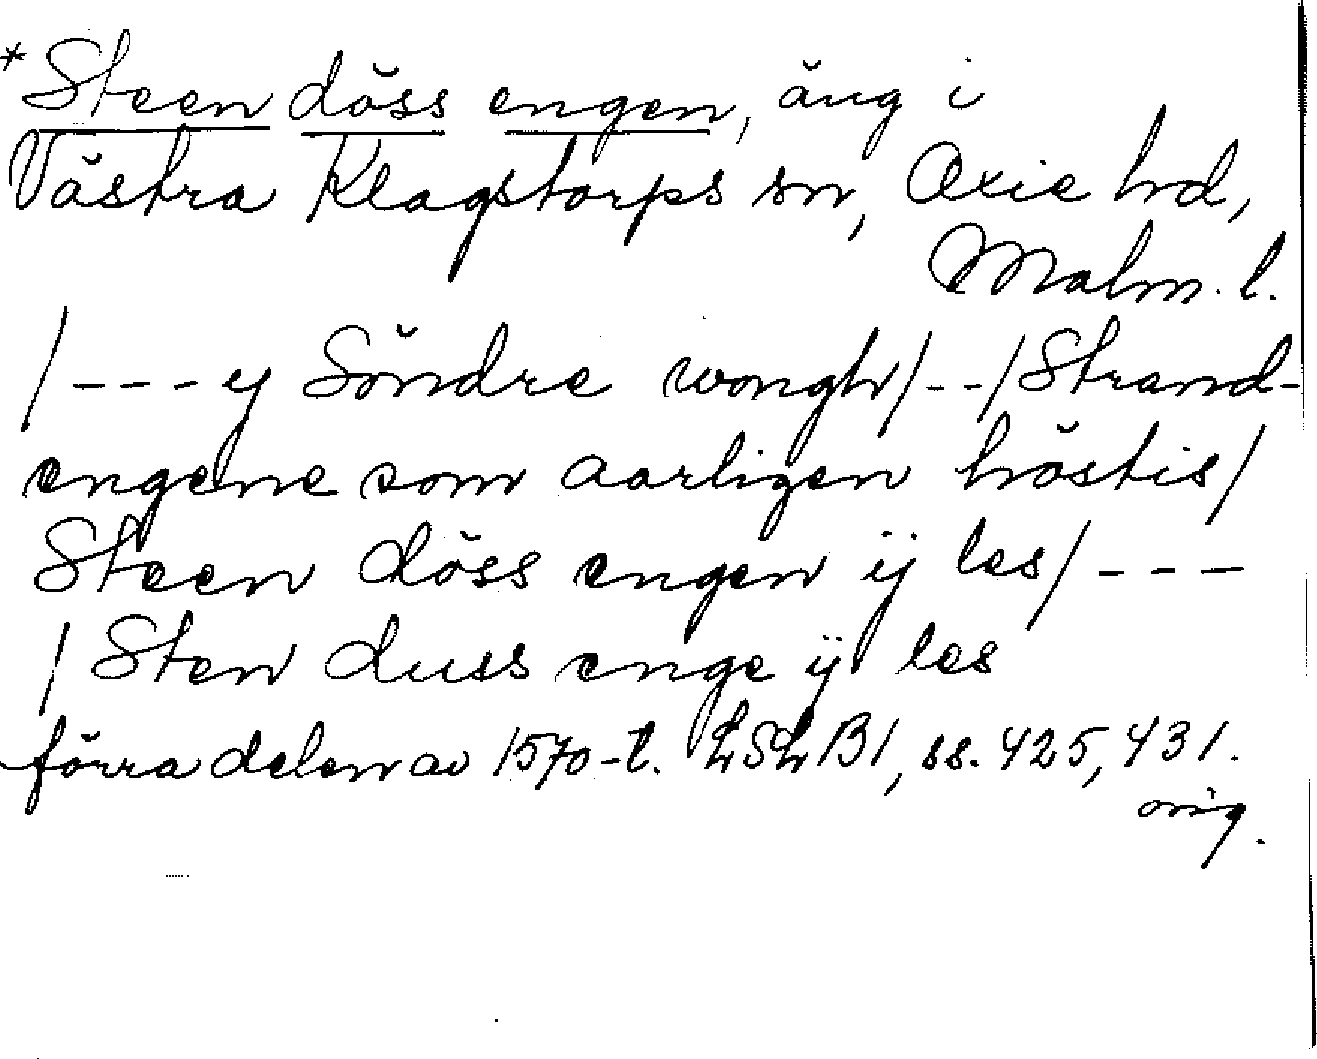 *Steen döss engen, äng i
Västra Klagstorps sn, Oxie hd,
Malm. l.
/---y Söndre wongh/--/Strand-
engene som aarligen höstis/
Steen döss engen ij les/---
/Sten duss enge ij les
förra delen av 1570-t. LSLB1, ss. 425, 431.
orig.